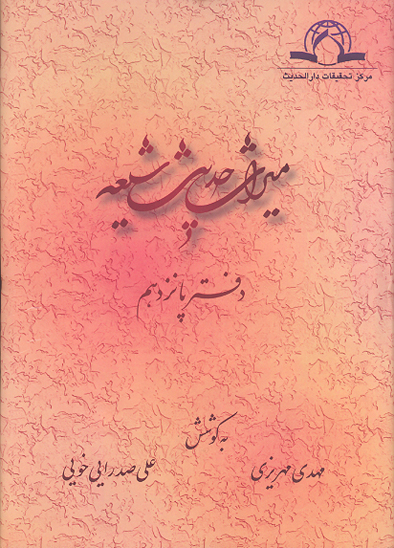 مرکز تحقیقات دارالحدیث
میراث حدیث شیعه
دفتر پانزدهم
به کوشش
مهدی مهریزی علی صدرایی خویی